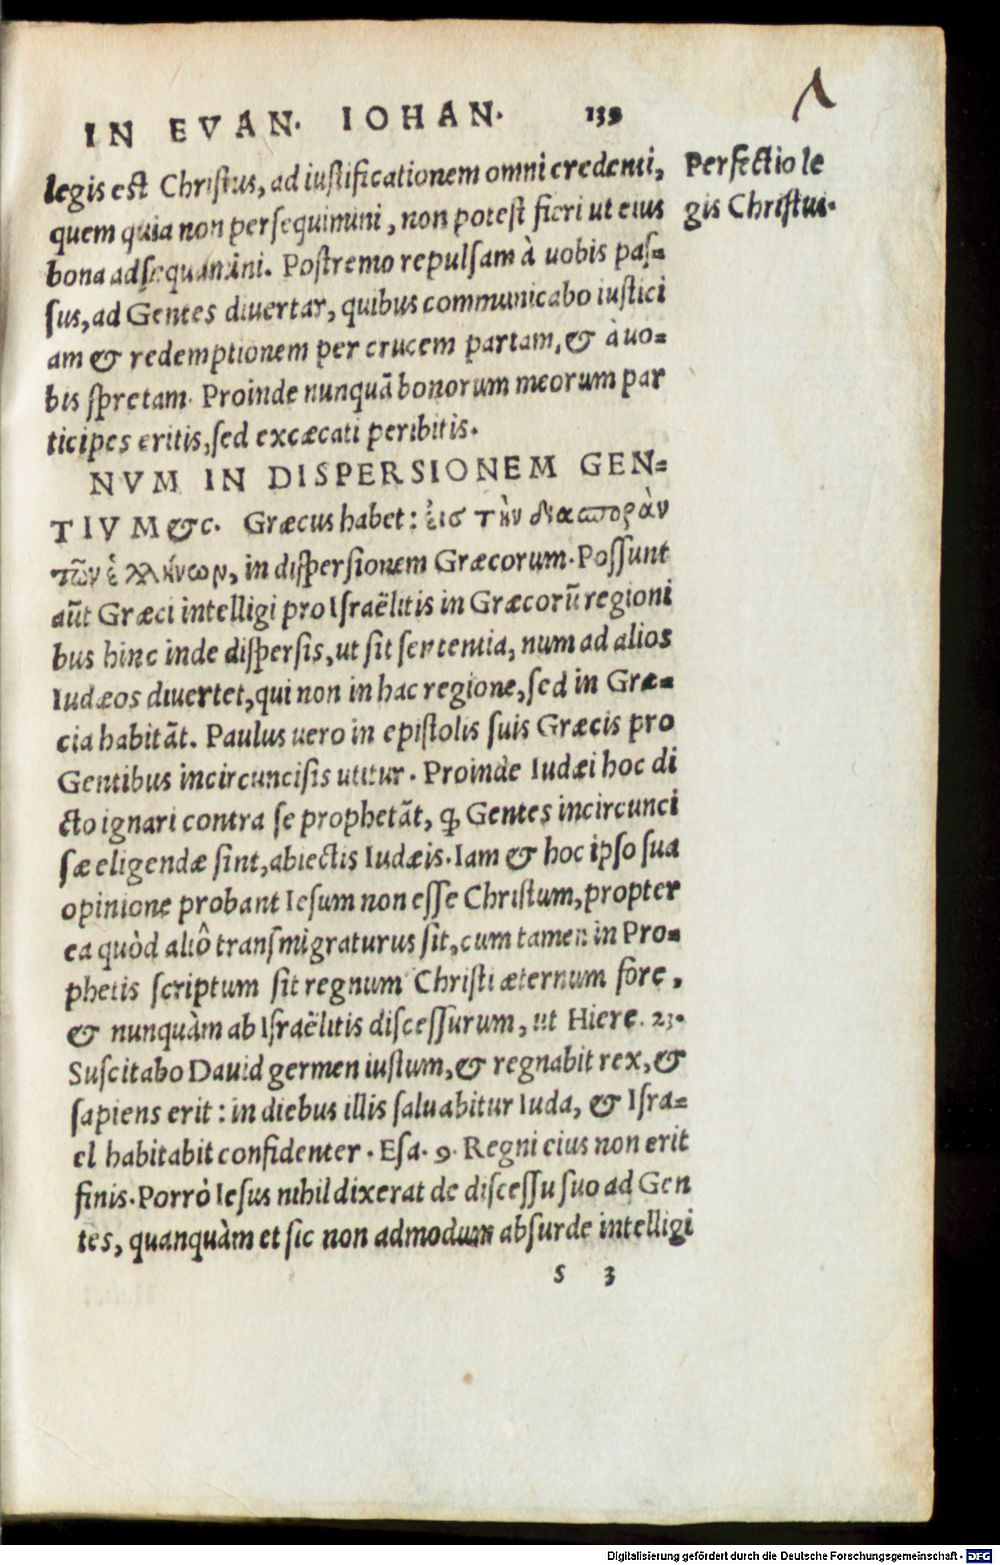 IN EVAN. IOHAN. 139
legis est Christus, ad iustificationem omni credenti,
quem quia non persequimini, non potest fieri ut eius
bona adsequamini. Postremo repulsam à uobis pas-
sus, ad Gentes diuertar, quibus communicabo iustici
am & redemptionem per crucem partam, & à uo-
bis spretam. Proinde nunquã bonorum meorum par
ticipes eritis, sed excæcati peribitis.
NVM IN DISPERSIONEM GEN-
TIVM &c. Græcus habet: εἰσ τὴν διασπορὰν
τῶν ἑλλήνων, in dispersionem Græcorum. Possunt
aūt Græci intelligi pro Israëlitis in Græcorū regioni
bus hinc inde dispersis, ut sit sententia, num ad alios
Iudæos diuertet, qui non in hac regione, sed in Græ-
cia habitãt. Paulus uero in epistolis suis Græcis pro
Gentibus incircuncisis utitur. Proinde Iudæi hoc di
cto ignari contra se prophetãt, ꝙ Gentes incircunci
sæ eligendæ sint, abiectis Iudæis. Iam & hoc ipso sua
opinione probant Iesum non esse Christum, propter
ea quòd aliô transmigraturus sit, cum tamen in Pro-
phetis scriptum sit regnum Christi æternum fore,
& nunquàm ab Israëlitis discessurum, ut Hiere. 23.
Suscitabo Dauid germen iustum, & regnabit rex, &
sapiens erit: in diebus illis saluabitur Iuda, & Isra-
el habitabit confidenter. Esa. 9. Regni eius non erit
finis. Porrò Iesus nihil dixerat de discessu suo ad Gen
tes, quanquàm et sic non admodum absurde intelligi
s 3
Perfectio le
gis Christus.
Digitalisierung gefördert durch die Deutsche Forschungsgemeinschaft - DFG